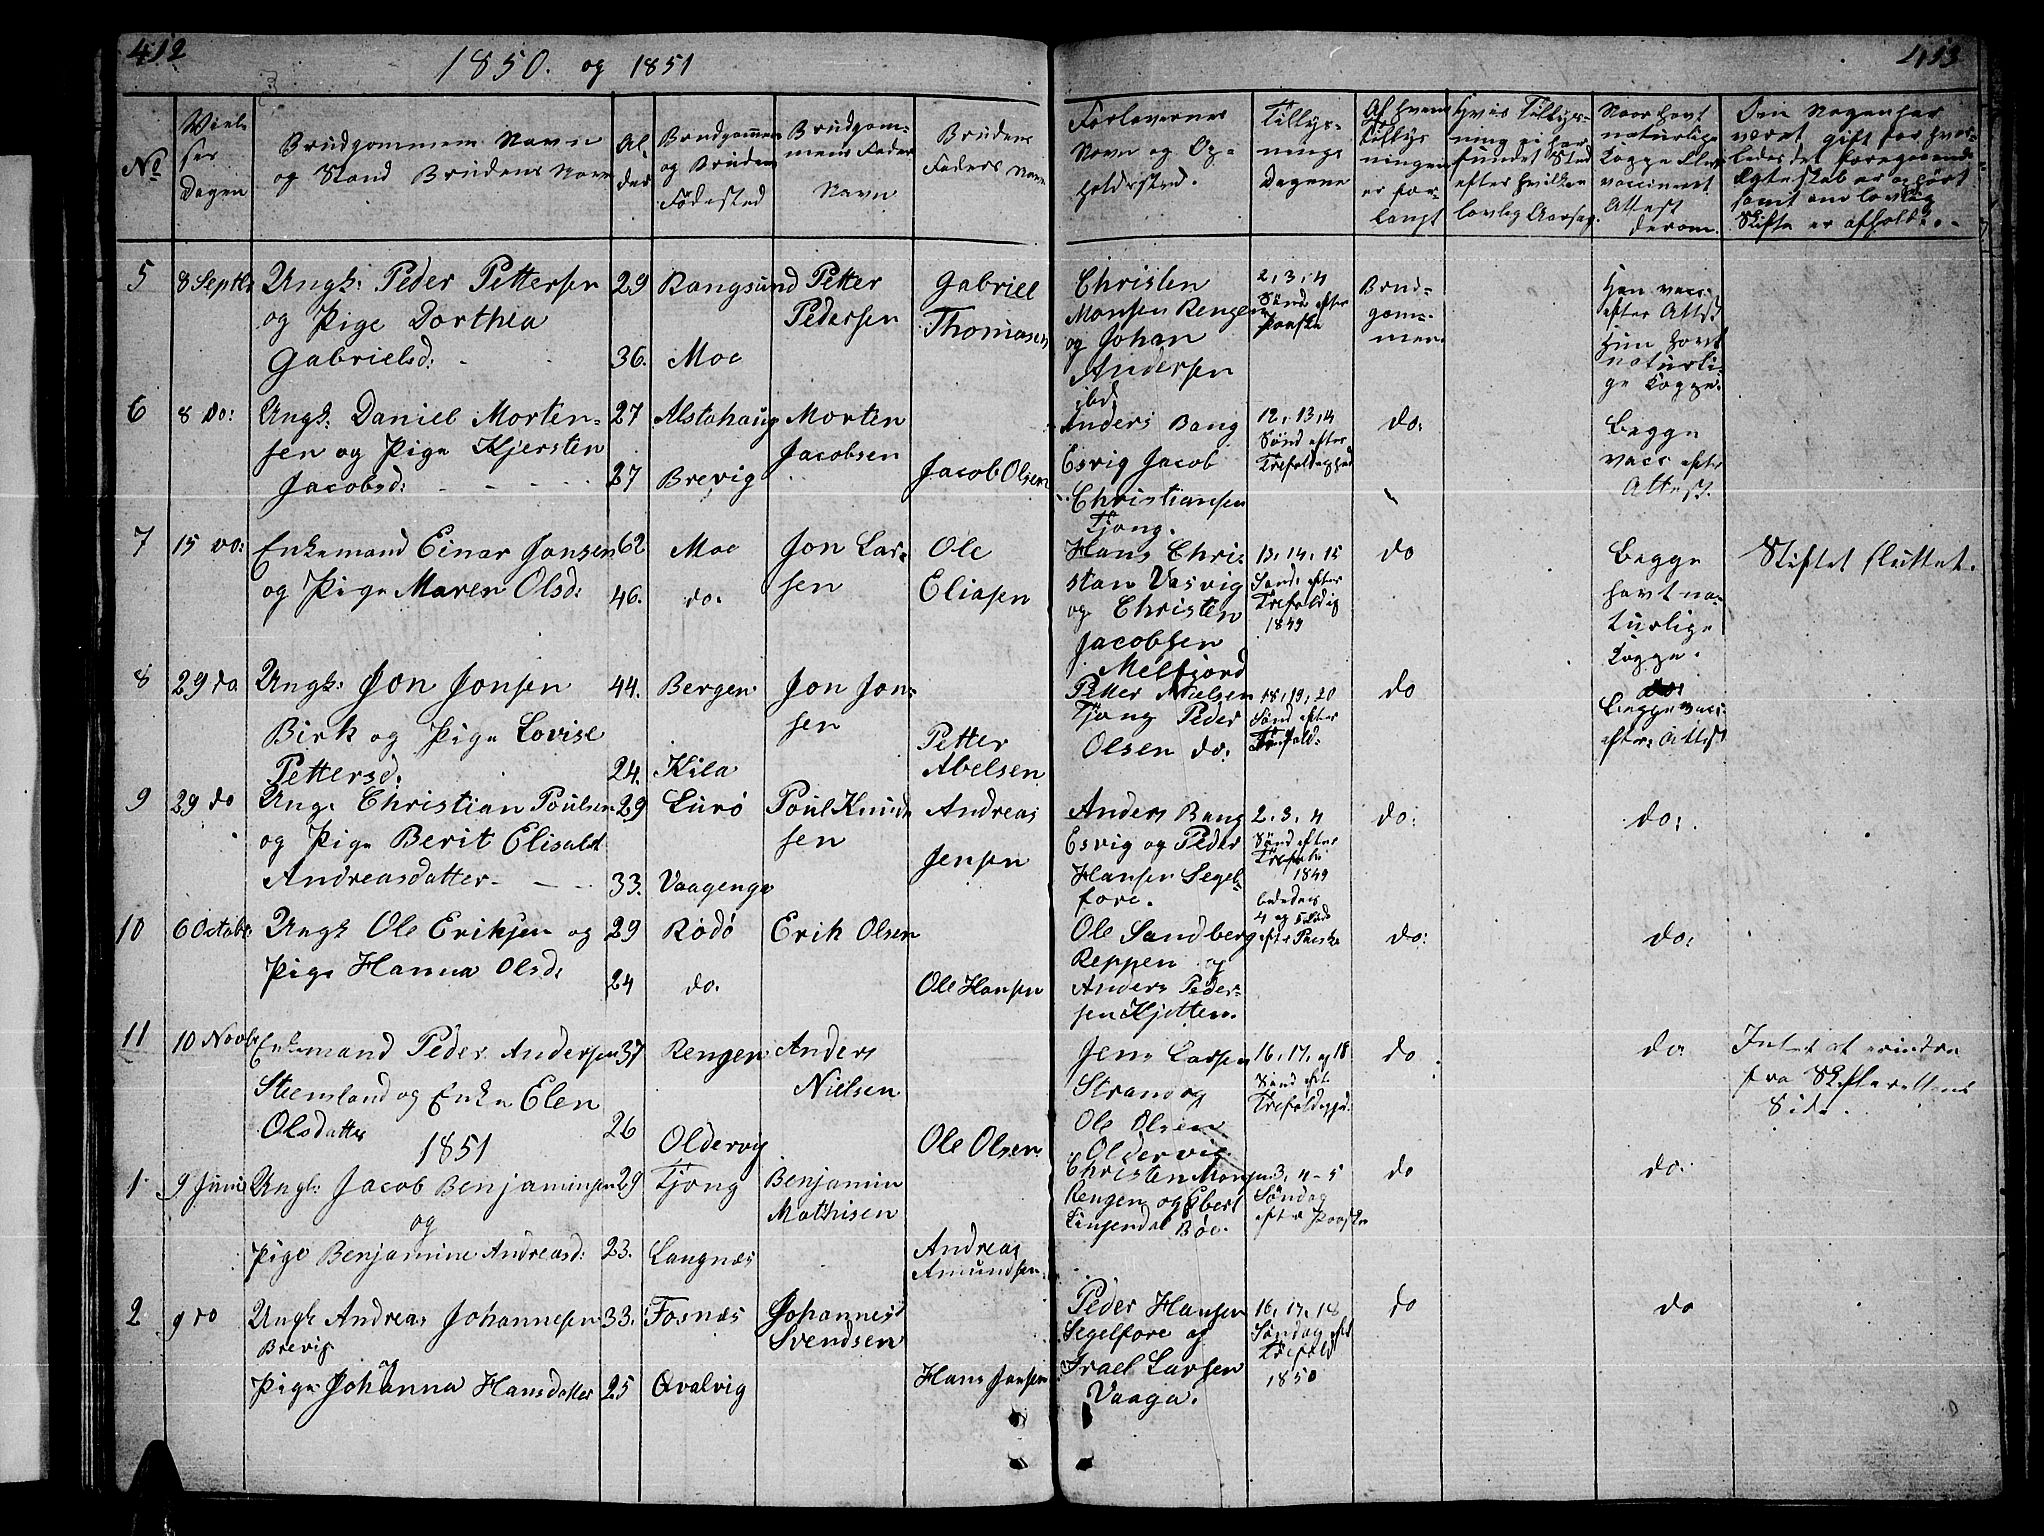 412
1850. og 1851
413
No
Viel-
ses
dagen
Brudgommens Navn
og Stand Brudens Navn
Al
der
Brudgommens
og Brudens
Fødested
Brudgom-
mens Fader
Navn
Brudens
Faders Navn
Forlovernes
Navn og Op-
holdssted.
Tillys-
nings
Dagene
Af hvem
Tillys
ningen
er for-
langt
Hvis Tillys-
ning ei har
fundet Sted
efter hvilken
lovlig Aarsag.
Naar havt
naturlige
Kopper eller
vaccineret
Attest
derom.
Om Nogen har
været gift før hvor-
ledes det foregaaende
Ægteskab er ophørt
samt om lovlig
Skifte er afholdt.
5 8 Septbr Ungk: Peder Pettersen 29 Rangsund Petter Gabriel Christen 2, 3, 4 Brud- Han vacc.
og Pige Dorthea Pedersen Thomasen Monsen Rengen Sønd efter gom- efter Attest
Gabrielsd: 36. Moe og Johan Paaske men Hun havt
Andersen naturli-
ibd: ge Kopper.
6 8 do: Ungk: Daniel Morten- 27 Alstahaug Morten Anders Bang 12, 13, 14 do: Begge
sen og Pige Kjersten Jacobsen Esvig Jacob Sønd efter vacc efter
Jacobsd: 27 Brevig Jacob Olsen Christiansen Trefoldighed Attest.
Tjong.
7 15 do: Enkemand Einar Jonsen 62 Moe Jon Lar- Ole Hans Chri- 13, 14, 15 do Begge Skiftet sluttet.
og Pige Maren Olsd: 46. do. sen Eliasen stan Vasvig Sønd: efter havt na-
og Christen Trefoldig turlige
Jacobsen 1849 Kopper.
Melfjord
8 29 do. Ungk: Jon Jonsen 44. Bergen Jon Jon- Petter Nielsen 18, 19, 20 do
Birk og Pige Lovise sen Petter Tjong Peder Sønd efter Begge vacc.
Pettersd: 24. Kila Abelsen Olsen do: Trefold: efter Attest
9 29 do Ung. Christian Poulsen 29 Lurø Poul Knud Andreas Anders Bang 2, 3, 4 do: do:
og Pige Berit Elisabet sen Jensen Esvig og Peder Sønd efter
Andreasdatter 33. Vaagenge Hansen Segel- 1849
fore.
10 6 Octobr Ungk Ole Eriksen og 29 Rødø Erik Olsen Ole Sandberg 4 og efter Paaske do: do:
Pige Hanna Olsd: 24 do. Ole Hansen Reppen og
Anders Peder-
sen Kjotten.
11 10 Novbr Enkemand Peder Andersen 37 Rengen Anders Jens Larsen 16, 17, og 18 do do: Intet at erindre
Steensland og Enke Elen Nielsen Strand og Sønd eft fra Skifterettens
Olsdatter 26 Oldervig Ole Olsen Ole Olsen Trefoldighd. Side.
Oldervig
1851
1. 9 Juni Ungk: Jacob Benjaminsen 29 Tjong Benjamin Christen Monsen 3, 4 - 5 do do.
og Mathisen Rengen og Ebert Søndag
Pige Benjamine Andreasd: 23. Langnæs Andreas Bøe. efter Paaske
Amundsen
2 9 do Ungk Andreas Johannesen 33. Fosnæs Johannes Peder Hansen 16, 17, 18 do do
Brevig Svendsen Segelfore og Søndag eft
og Israel Larsen Trefold
Pige Johanna Hansdatter 25 Qvalvig Hans Jansen Vaaga. 1850